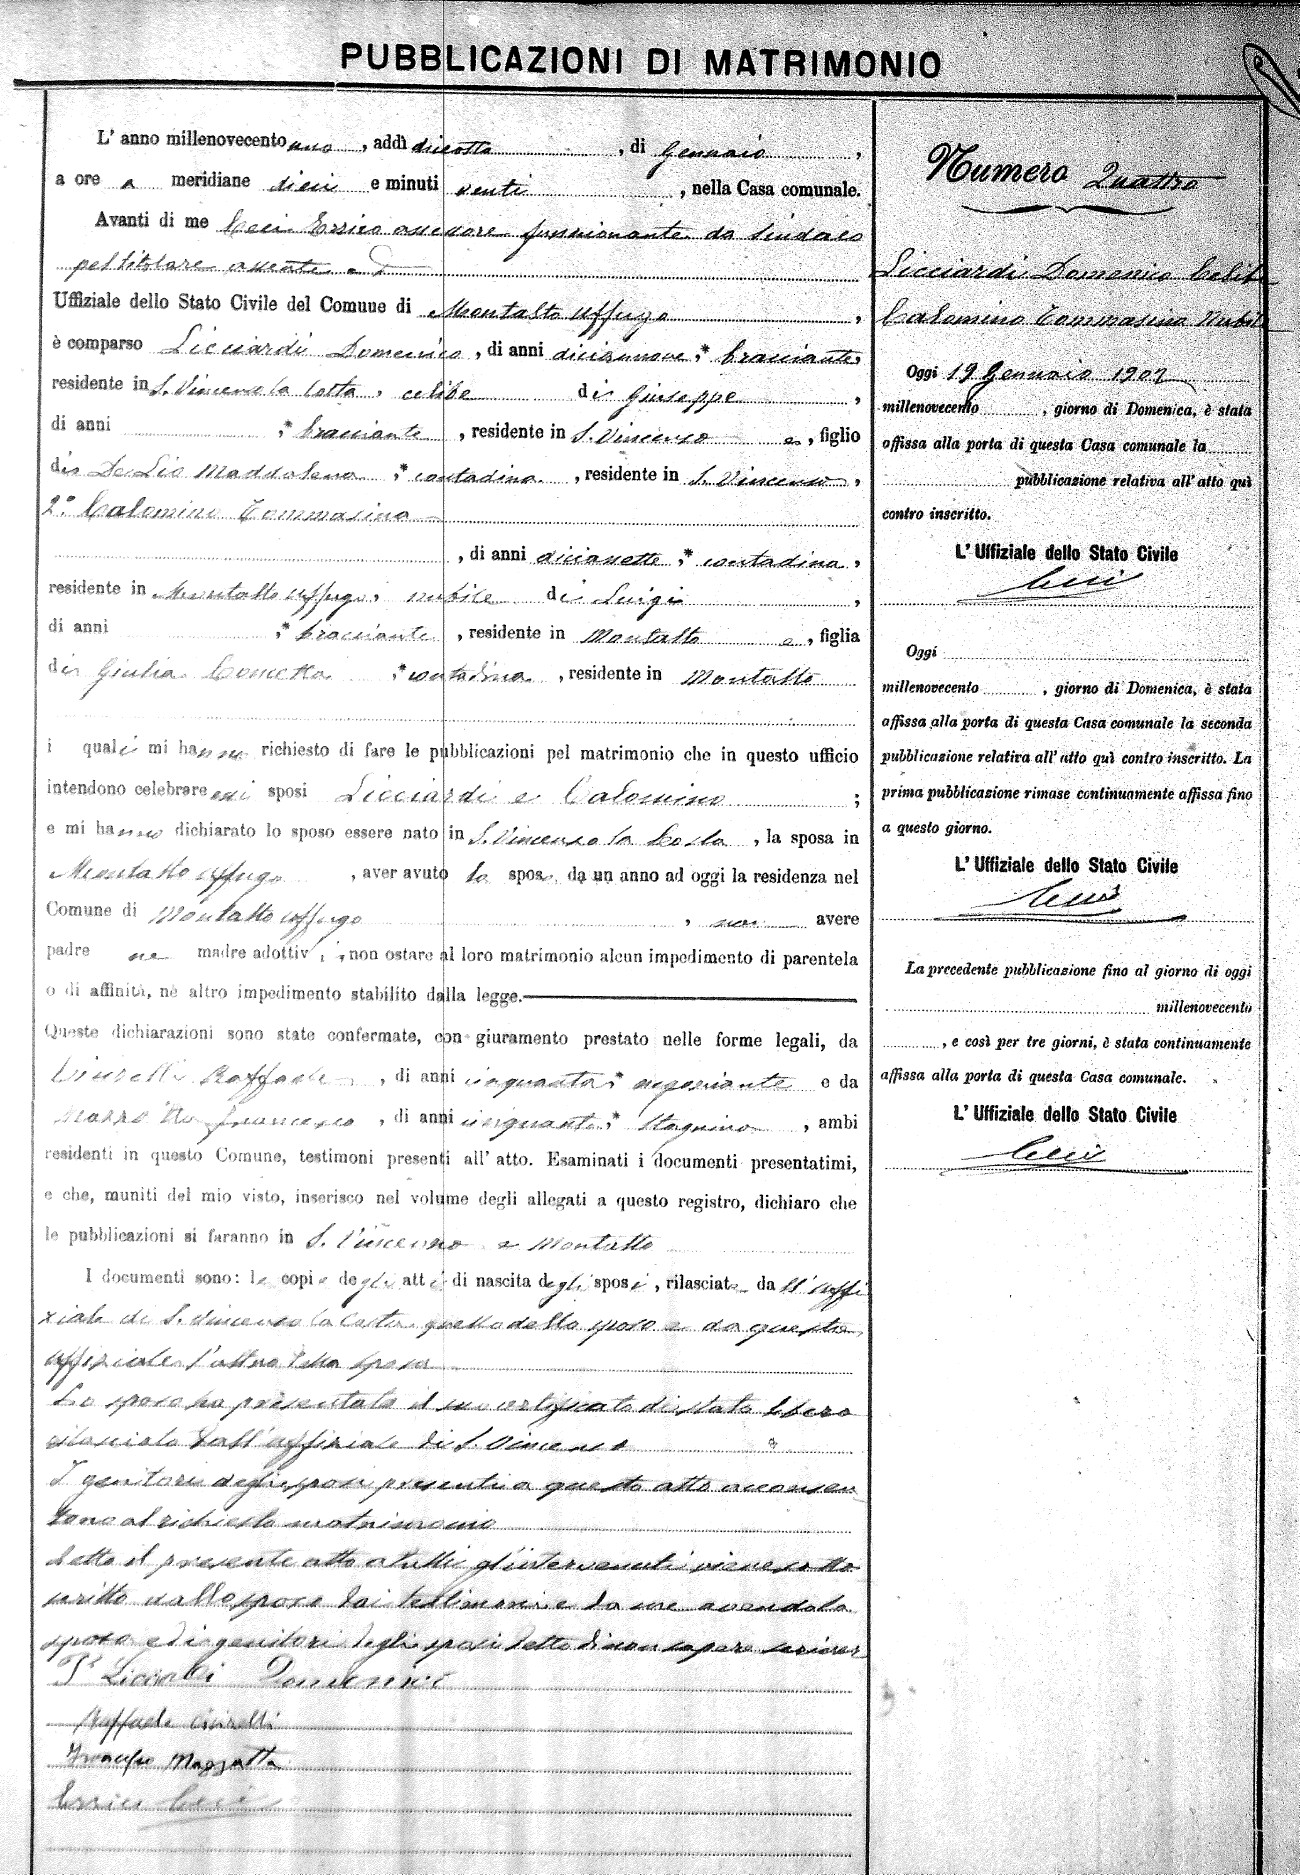 PUBBLICAZIONI DI MATRIMONIO
L' anno millenovecento uno, addì diciotto, di Gennaio,
a ore a meridiane dieci e minuti venti, nella Casa comunale.
Avanti di me Ceci Errico assessore funzionante da Sindaco
pel titolare assente
Uffiziale dello Stato Civile del Comune di Montalto Uffugo,
è comparso Licciardi Domenico, di anni diciannove,* bracciante,
residente in S. Vincenzo la Costa, celibe di Giuseppe,
di anni ,* bracciante, residente in S. Vincenzo e, figlio
di De Lio Maddalena,* contadina, residente in S. Vincenzo,
2º Calomino Tommasina
, di anni diciassette,* contadina,
residente in Montalto Uffugo, nubile di Luigi,
di anni ,* bracciante, residente in Montalto e, figlia
di Giulia Cometta,* contadina, residente in Montalto
i quali mi hanno richiesto di fare le pubblicazioni pel matrimonio che in questo ufficio
intendono celebrare essi sposi Licciardi e Calomino ;
e mi hanno dichiarato lo sposo essere nato in S. Vincenzo la Costa, la sposa in
Montalto Uffugo, aver avuto la sposa da un anno ad oggi la residenza nel
Comune di Montalto Uffugo, non avere
padre ne madre adottivi, non ostare al loro matrimonio alcun impedimento di parentela
o di affinità, nè altro impedimento stabilito dalla legge.
Queste dichiarazioni sono state confermate, con giuramento prestato nelle forme legali, da
Raffaele, di anni cinquanta,* negoziante e da
Francesco, di anni cinquanta,* Stagnino, ambi
residenti in questo Comune, testimoni presenti all' atto. Esaminati i documenti presentatimi,
e che, muniti del mio visto, inserisco nel volume degli allegati a questo registro, dichiaro che
le pubblicazioni si faranno in S. Vincenzo e Montalto
I documenti sono: le copie degli atti di nascita degli sposi, rilasciate dall' uffi
ziale di S. Vincenzo la Costa quella dello sposo e da questo
uffiziale l'altra della sposa
Lo sposo ha presentato il suo certificato di stato libero
rilasciato dall'uffiziale di S. Vincenzo
I genitori degli sposi presenti a questo atto acconsen
tono al richiesto matrimonio
Letto il presente atto a tutti gl'intervenuti viene sotto
scritto dallo sposo dai testimoni e da me avendo la
sposa ed i genitori degli sposi detto di non sapere scrivere
Licciardi Domenico
Raffaele
Francesco Mazzotta
Errico Ceci
Numero Quattro
Licciardi Domenico Celibe
Calomino Tommasina Nubile
Oggi 19 Gennaio 1902
millenovecento , giorno di Domenica, è stata
affissa alla porta di questa Casa comunale la
pubblicazione relativa all' atto quì
contro inscritto.
L' Uffiziale dello Stato Civile
Ceci
Oggi
millenovecento , giorno di Domenica, è stata
affissa alla porta di questa Casa comunale la seconda
pubblicazione relativa all' atto quì contro inscritto. La
prima pubblicazione rimase continuamente affissa fino
a questo giorno.
L' Uffiziale dello Stato Civile
Ceci
La precedente pubblicazione fino al giorno di oggi
millenovecento
, e così per tre giorni, è stata continuamente
affissa alla porta di questa Casa comunale.
L' Uffiziale dello Stato Civile
Ceci